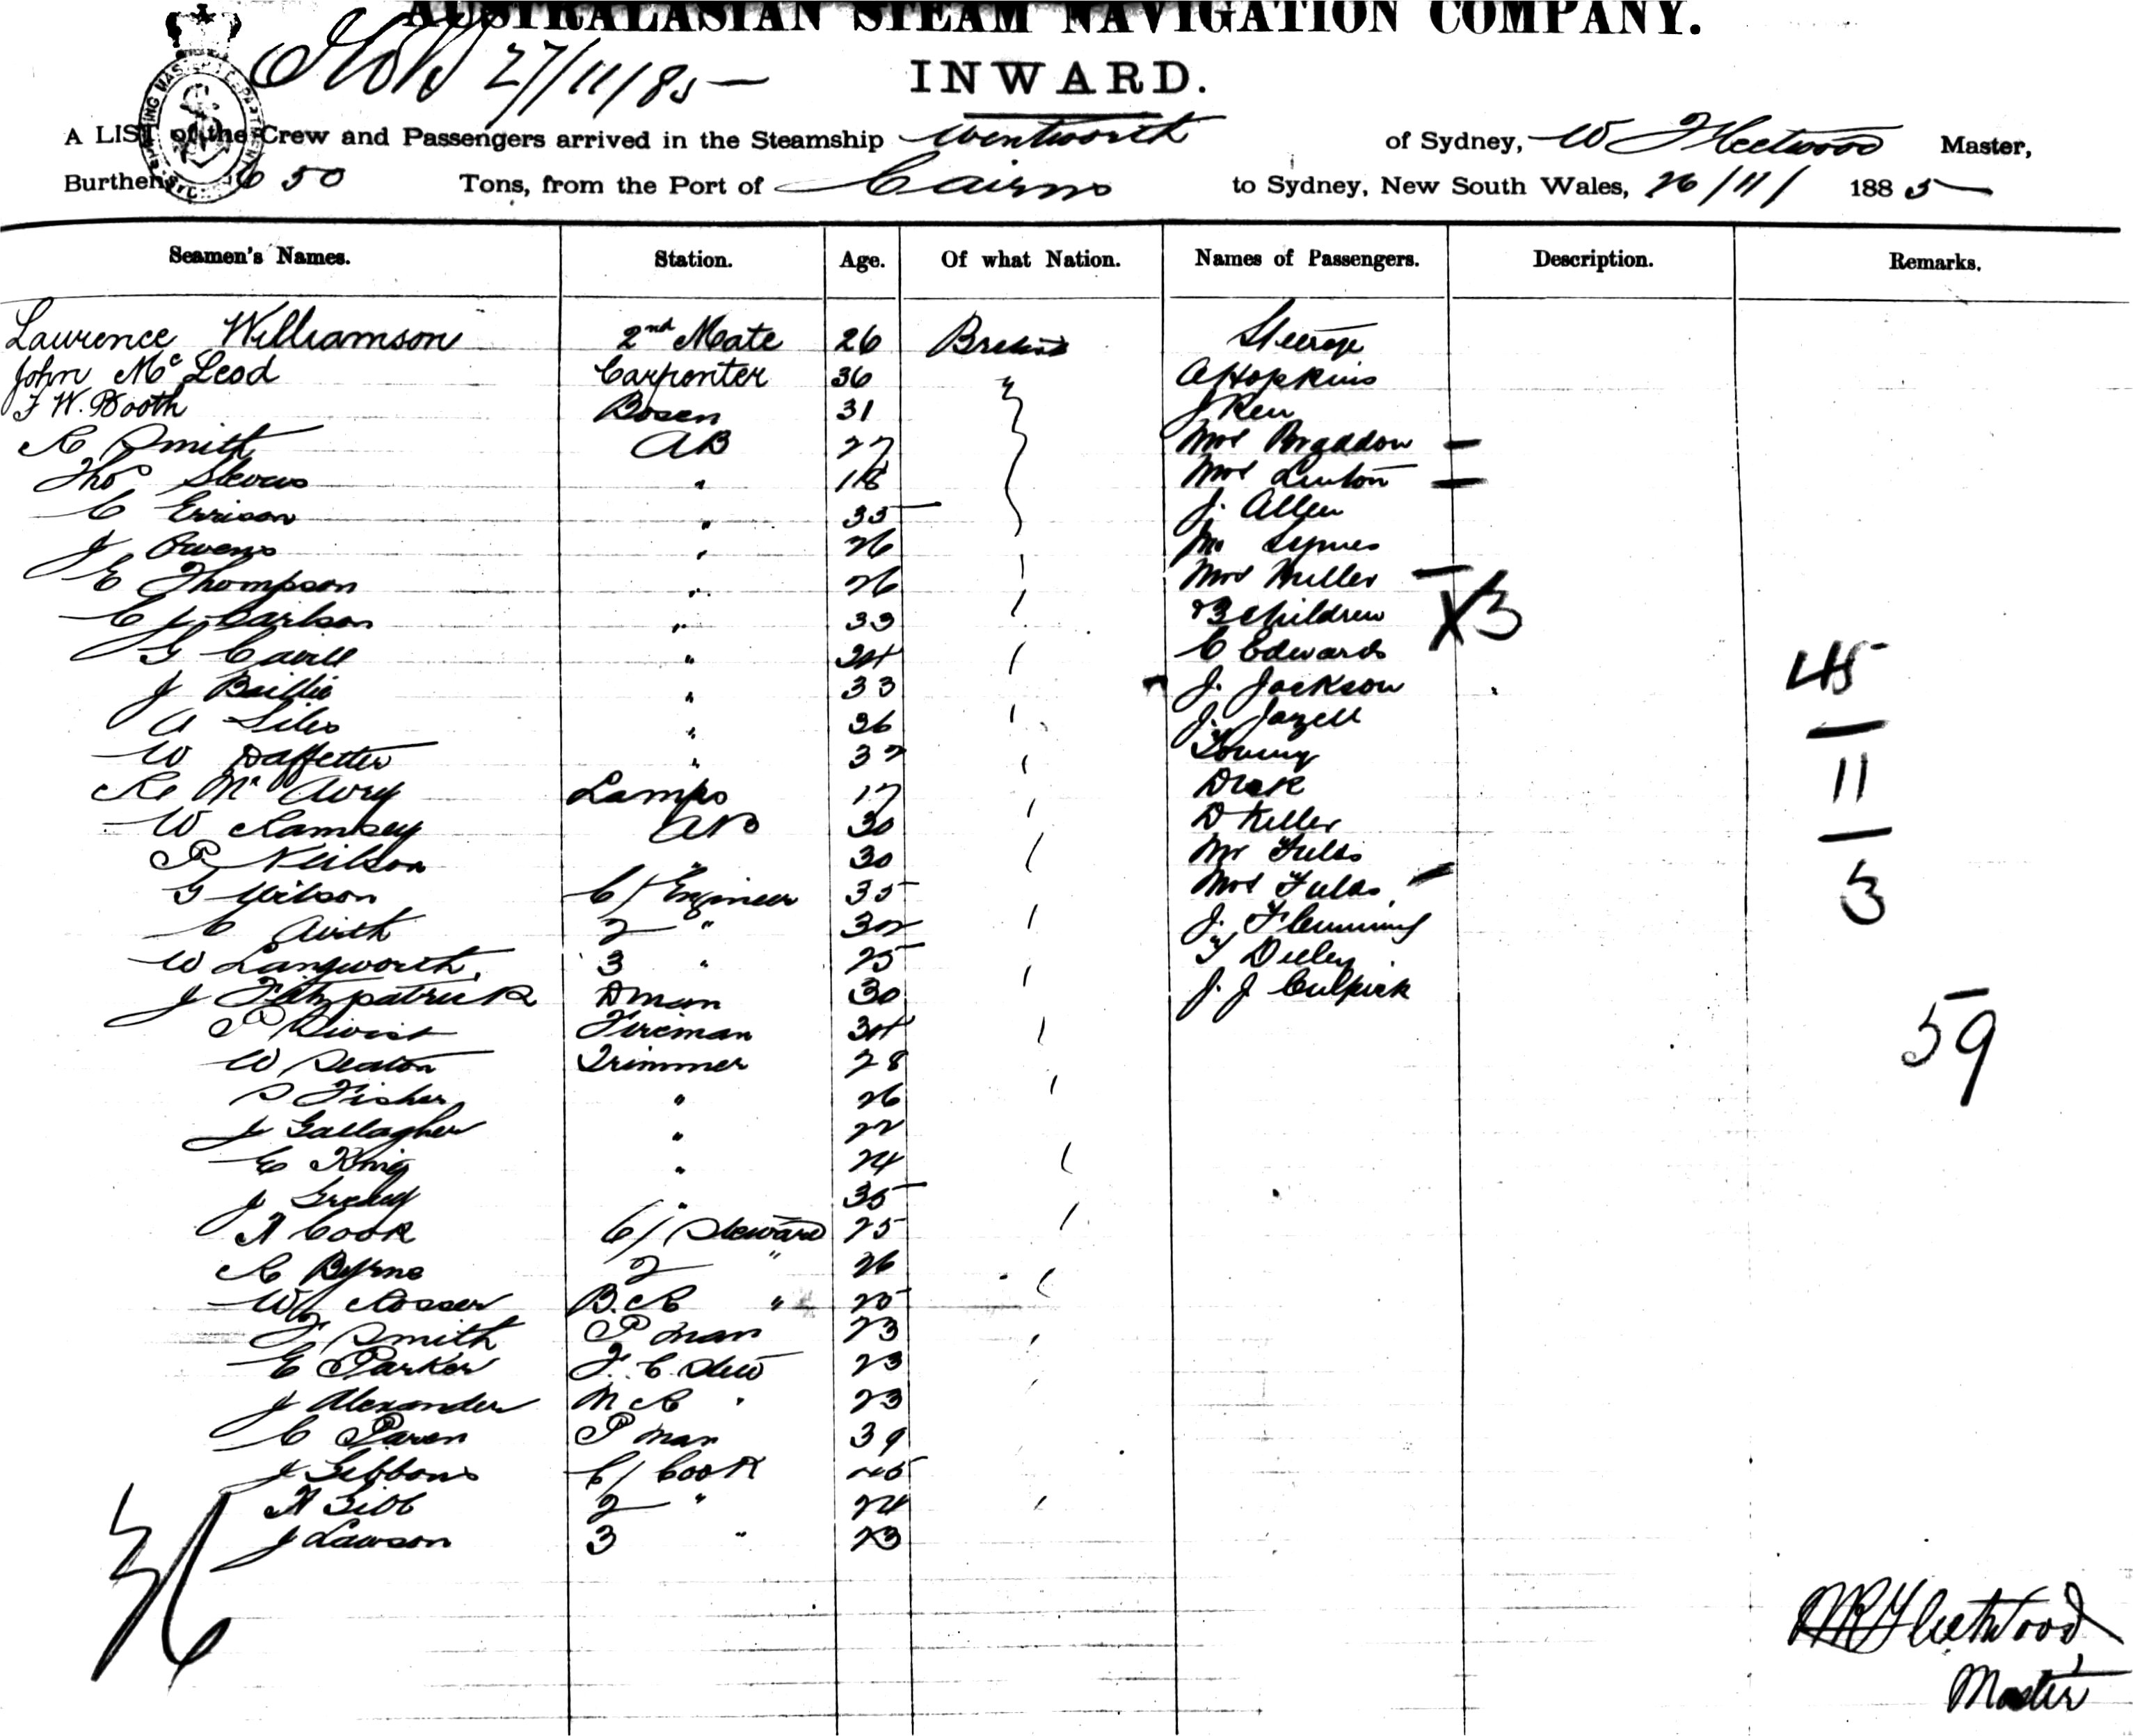 AUSTRALASIAN STEAM NAVIGATION COMPANY.
27/11/85
INWARD.
A LIST of the Crew and Passengers arrived in the Steamship Wentworth of Sydney, W Fleetwood Master,
Burthen 650 Tons, from the Port of Cairns to Sydney, New South Wales, 26/11/ 1885
Seamen's Names. Station. Age. Of what Nation. Names of Passengers. Description. Remarks.
Lawrence Williamson 2nd Mate 26 British Steerage
John McLeod Carpenter 36 A Hopkins
F W. Booth Bosen 31 J Ken
R Smith AB 27 Mrs Braddon
Thos Stevens " 18 Mrs Linton
C Errison " 35 J. Allen
J Owens " 26 Mr Symes
E Thompson " 26 Mrs Miller
C J Carlson " 33 3 children X3
G Cavill " 34 C Edwards 45
J Baillie " 33 J. Jackson
A Siles " 36 J. Jazell
W " 37 Young 11
R Mc Avey Lamps 17 Dick
W Ramsey AB 30 D Keller
P Neilson " 30 Mr Fulds 3
G Wilson C/ Engineer 35 Mrs Fulds
C Airth 2 " 32 J. Flemming
W Langworth 3 " 25 Deeley
J Fitzpatrick D man 30 J. J Culpick
P Twist Fireman 34 59
W Seaton Trimmer 28
S Fisher " 26
J Gallagher " 22
E King " 24
J Gready " 35
H Cook C/ Steward 25
R Byrne 2 " 26
W Rosser B. R " 25
F Smith P man 23
E Parker F. C Stew 23
J Alexander M R " 23
C Paren P man 39
J Gibbons C/ Cook 45
H Gibb 2 " 24
J Lawson 3 " 23
36
Fleetwood
Master